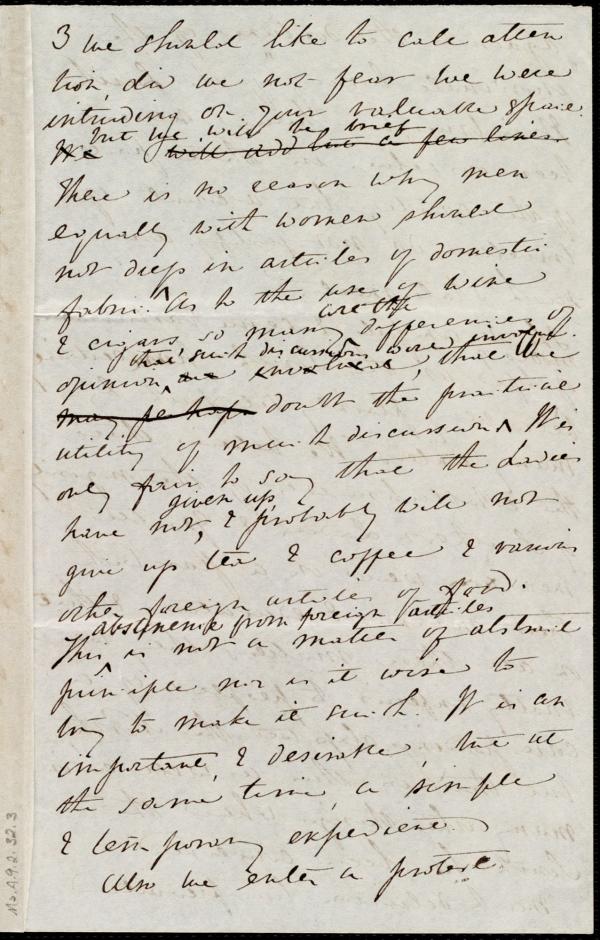 3 we should like to call atten
tion, did we not fear we were
intruding on your valuable space.
but we will be brief
We will add but a few lines.
There is no reason why men
equally with women should
not dress in articles of domestic
fabric. As to the use of wine
are the
& cigars so many differences of
that such discussions were involved.
opinion are involved, that we
may perhaps doubt the practical
utility of much discussion. It is
only fair to say that the Ladies
given up,
have not, & probably will not
give up tea & coffee & various
other foreign articles of food.
abstinence from foreign articles
This is not a matter of abstract
principle nor is it wise to
try to make it such. It is an
important, & desirable, but at
the same time, a simple
& temporary expedient.
Also we enter a protest
Ms.A.9.2.32.3